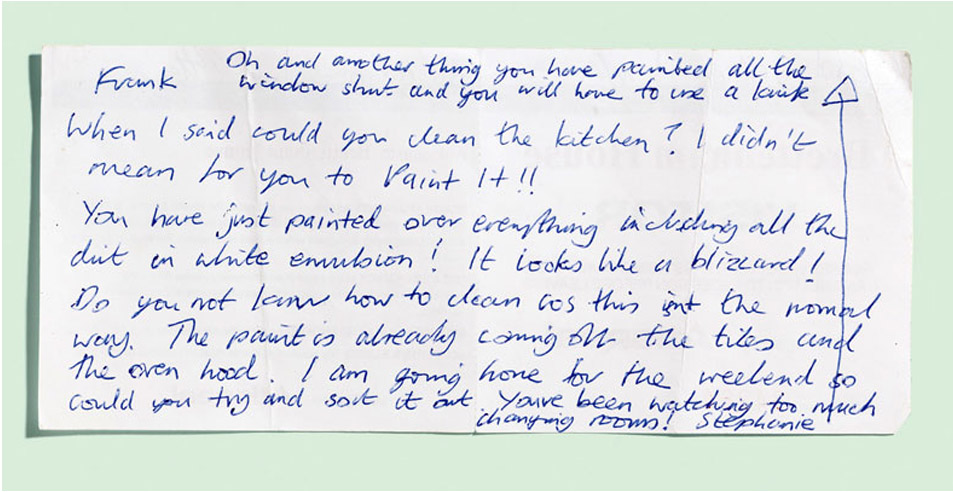 Frank
Oh and another thing you have painted all the
window shut and you will have to use a knife
When I said could you clean the kitchen? I didn't
mean for you to Paint It!!
You have just painted over everything including all the
dirt in white emulsion! It looks like a blizzard!
Do you not know how to clean cos this isnt the normal
way. The paint is already coming off the tiles and
the oven hood. I am going home for the weekend so
could you try and sort it out. Youve been watching too much
changing rooms! Stephanie